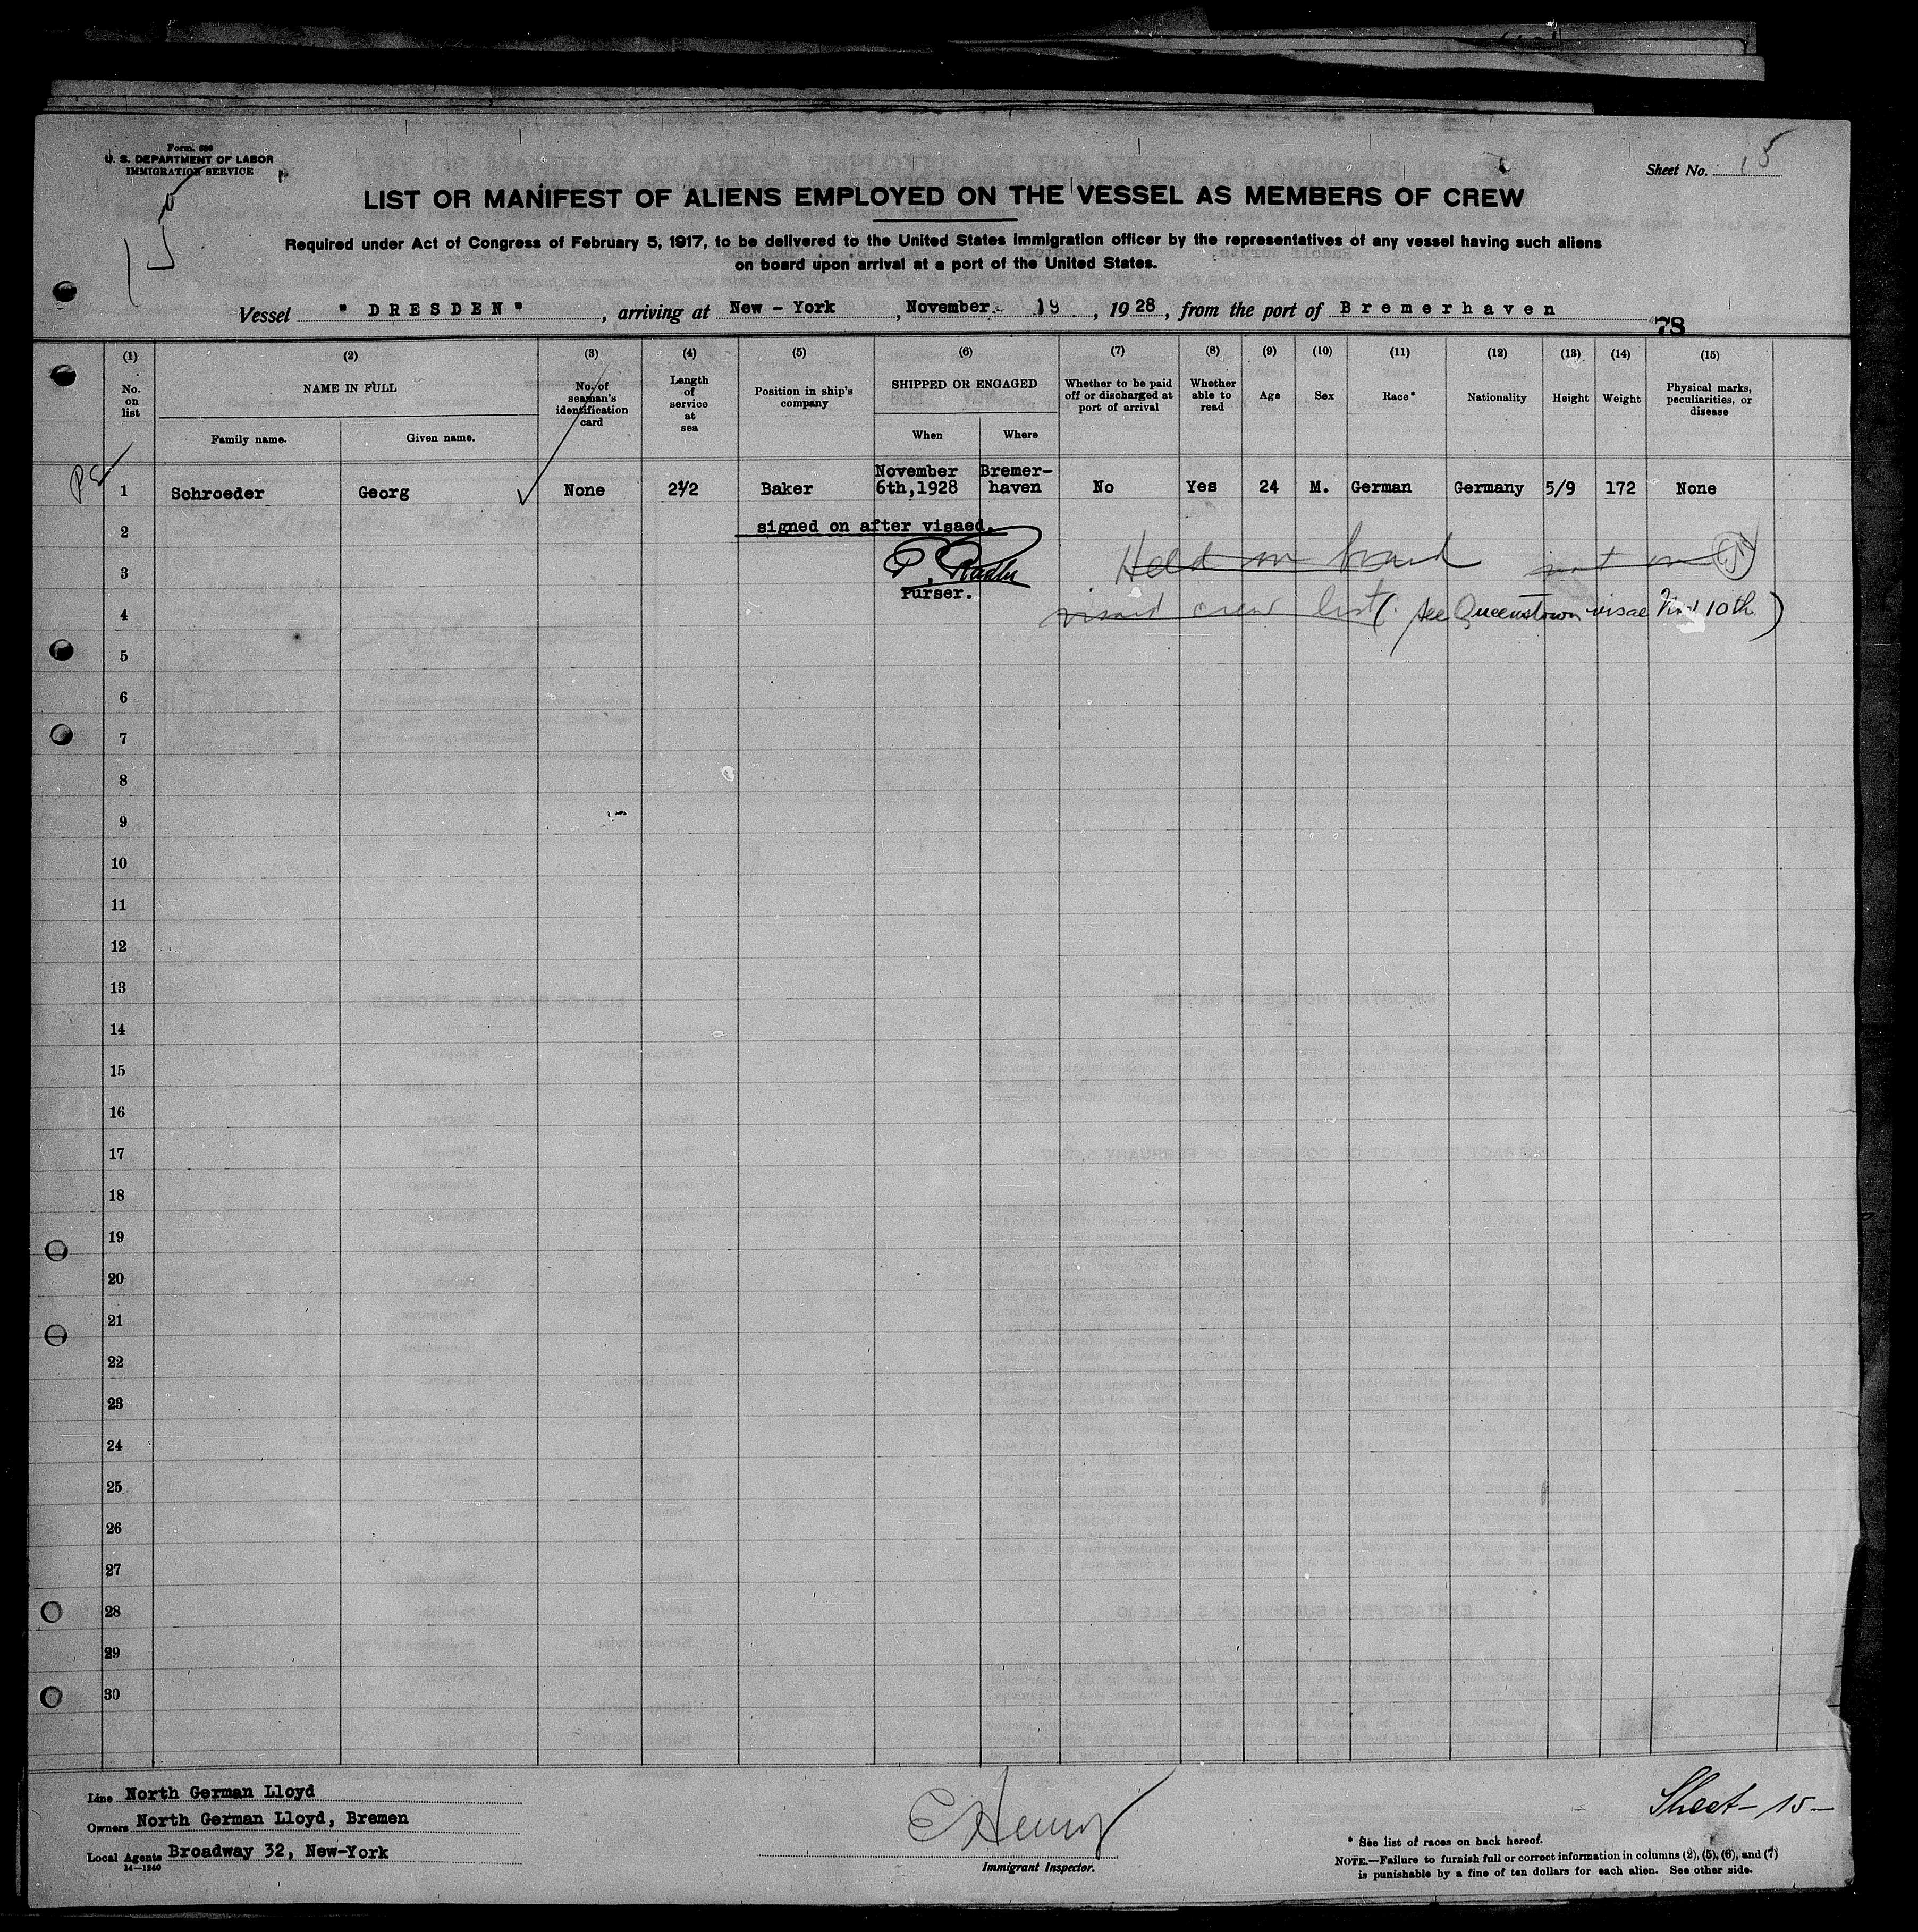 Form 680
U. S. DEPARTMENT OF LABOR
IMMIGRATION SERVICE
Sheet No. 15
LIST OR MANIFEST OF ALIENS EMPLOYED ON THE VESSEL AS MEMBERS OF CREW
Required under Act of Congress of February 5, 1917, to be delivered to the United States immigration officer by the representatives of any vessel having such aliens
on board upon arrival at a port of the United States.
Vessel " DRESDEN ", arriving at New - York, November 19, 1928, from the port of Bremerhaven
78
(1) (2) (3) (4) (5) (6) (7) (8) (9) (10) (11) (12) (13) (14) (15)
No. on list
NAME IN FULL
Family name. Given name.
No. of seaman's identification card
Length of service at sea
Position in ship's company
SHIPPED OR ENGAGED
When Where
Whether to be paid off or discharged at port of arrival
Whether able to read
Age
Sex
Race*
Nationality
Height
Weight
Physical marks, peculiarities, or disease
1 Schroeder Georg None 2½ Baker November 6th, 1928 Bremer-haven No Yes 24 M. German Germany 5/9 172 None
2 signed on after visaed.
3 Held on board not on
Purser.
4 visaed crew list (see Queenstown visae Nov 10th)
5
6
7
8
9
10
11
12
13
14
15
16
17
18
19
20
21
22
23
24
25
26
27
28
29
30
Line North German Lloyd
Owners North German Lloyd, Bremen
Local Agents Broadway 32, New-York
14—1240
Immigrant Inspector.
Sheet - 15 -
* See list of races on back hereof.
NOTE.—Failure to furnish full or correct information in columns (2), (5), (6), and (7)
is punishable by a fine of ten dollars for each alien. See other side.